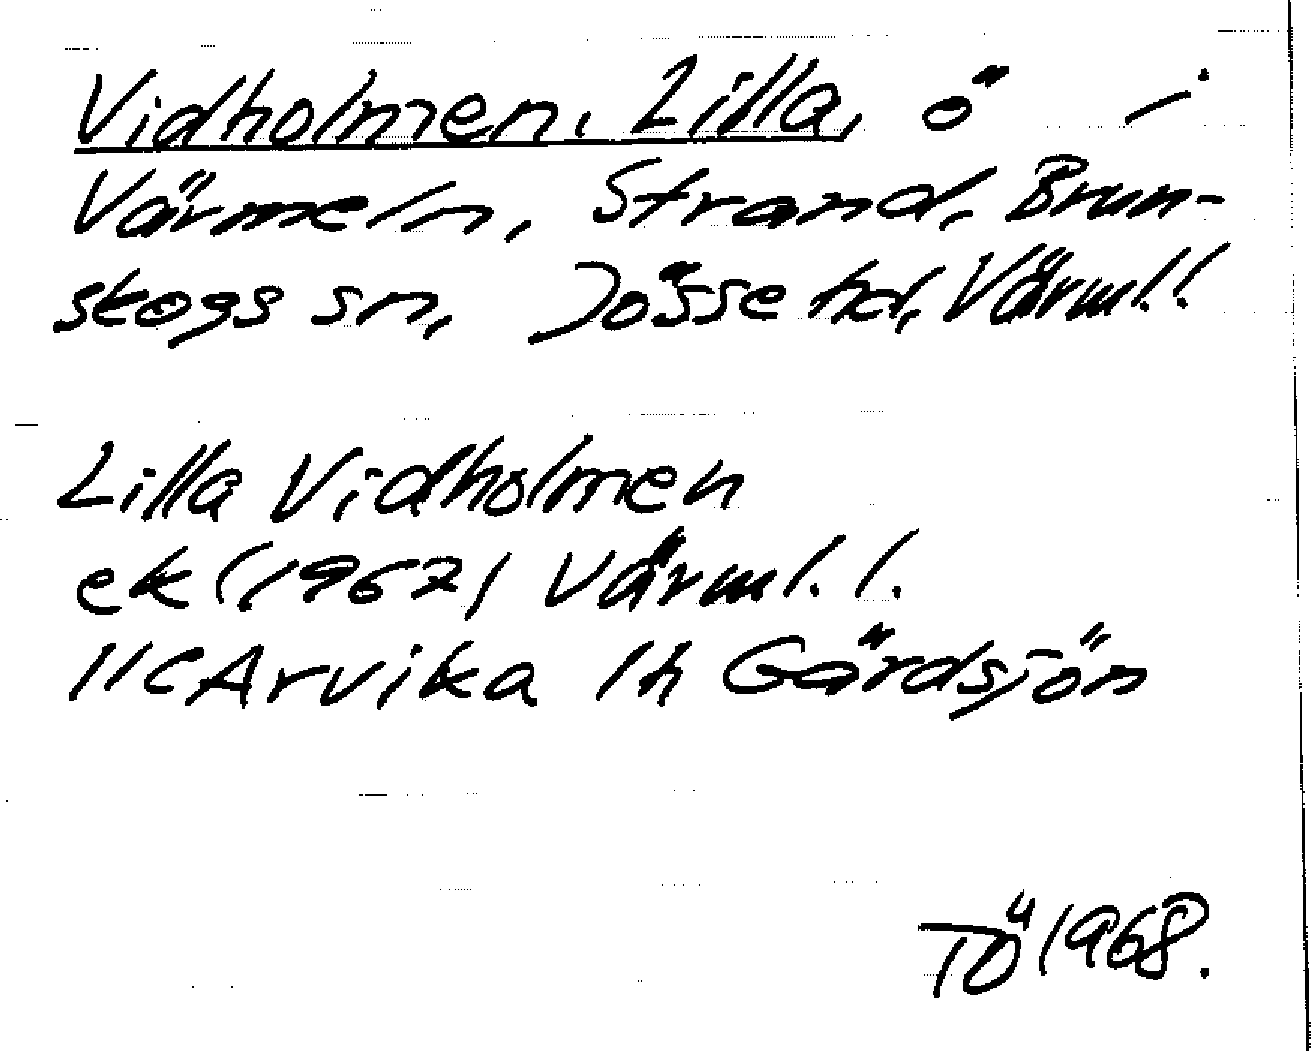 Vidholmen, Lilla, ö i
Värmeln, Strand, Brun-
skogs sn, Jösse hd, Värml.l.
Lilla Vidholmen
ek (1967) Värml. l.
11CArvika 1h Gärdsjön
TÖ 1968.